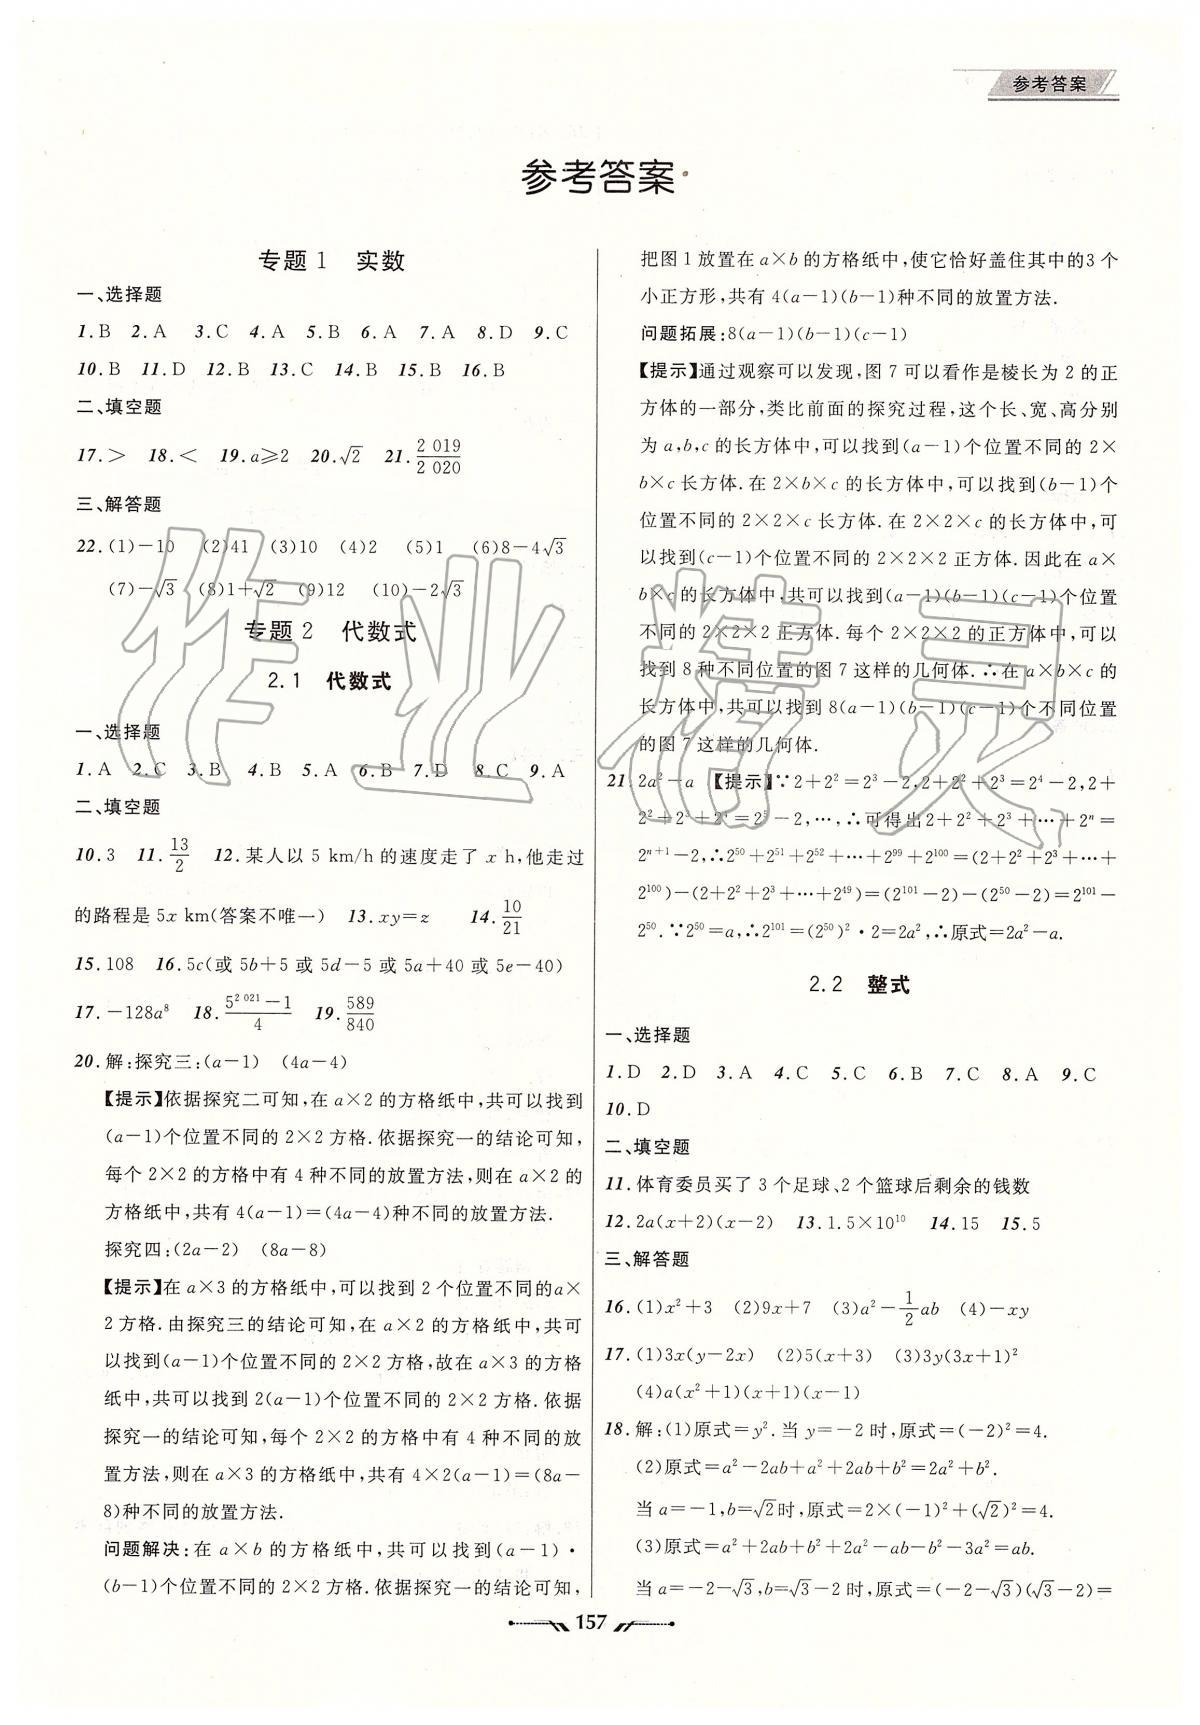 参考答案
参考答案
专题1 实数
一、选择题
1.B 2.A 3.C 4.A 5.B 6.A 7.A 8.D 9.C
10.B 11.D 12.B 13.C 14.B 15.B 16.B
二、填空题
17.> 18.< 19.a≥2 20.√2 21.2 019/2 020
三、解答题
22.(1)-10 (2)41 (3)10 (4)2 (5)1 (6)8-4√3
(7)-√3 (8)1+√2 (9)12 (10)-2√3
专题2 代数式
2.1 代数式
一、选择题
1.A 2.C 3.B 4.B 5.A 6.B 7.D 8.C 9.A
二、填空题
10.3 11.13/2 12.某人以 5 km/h 的速度走了 x h,他走过
的路程是 5x km(答案不唯一) 13.xy=z 14.10/21
15.108 16.5c(或 5b+5 或 5d-5 或 5a+40 或 5e-40)
17.-128a⁸ 18.(5^(2 021)-1)/4 19.589/840
20.解:探究三:(a-1) (4a-4)
【提示】依据探究二可知,在 a×2 的方格纸中,共可以找到
(a-1)个位置不同的 2×2 方格.依据探究一的结论可知,
每个 2×2 的方格中有 4 种不同的放置方法,则在 a×2 的
方格纸中,共有 4(a-1)=(4a-4)种不同的放置方法.
探究四:(2a-2) (8a-8)
【提示】在 a×3 的方格纸中,可以找到 2 个位置不同的a×
2 方格.由探究三的结论可知,在 a×2 的方格纸中,共可
以找到(a-1)个位置不同的 2×2 方格,故在 a×3 的方格
纸中,共可以找到 2(a-1)个位置不同的 2×2 方格.依据
探究一的结论可知,每个 2×2 的方格中有 4 种不同的放
置方法,则在 a×3 的方格纸中,共有 4×2(a-1)=(8a-
8)种不同的放置方法.
问题解决:在 a×b 的方格纸中,共可以找到(a-1)·
(b-1)个位置不同的 2×2 方格.依据探究一的结论可知,
把图 1 放置在 a×b 的方格纸中,使它恰好盖住其中的3 个
小正方形,共有 4(a-1)(b-1)种不同的放置方法.
问题拓展:8(a-1)(b-1)(c-1)
【提示】通过观察可以发现,图 7 可以看作是棱长为 2 的正
方体的一部分,类比前面的探究过程,这个长、宽、高分别
为 a,b,c 的长方体中,可以找到(a-1)个位置不同的 2×
b×c 长方体.在 2×b×c 的长方体中,可以找到(b-1)个
位置不同的 2×2×c 长方体.在 2×2×c 的长方体中,可
以找到(c-1)个位置不同的 2×2×2 正方体.因此在 a×
b×c的长方体中,共可以找到(a-1)(b-1)(c-1)个位置
不同的 2×2×2 正方体.每个 2×2×2 的正方体中,可以
找到 8 种不同位置的图 7 这样的几何体.∴在 a×b×c 的
长方体中,共可以找到 8(a-1)(b-1)(c-1)个不同位置
的图 7 这样的几何体.
21.2a²-a 【提示】∵2+2²=2³-2,2+2²+2³=2⁴-2,2+
2²+2³+2⁴=2⁵-2,…,∴可得出2+2²+2³+…+2ⁿ=
2ⁿ⁺¹-2,∴2⁵⁰+2⁵¹+2⁵²+…+2⁹⁹+2¹⁰⁰=(2+2²+2³+…+
2¹⁰⁰)-(2+2²+2³+…+2⁴⁹)=(2¹⁰¹-2)-(2⁵⁰-2)=2¹⁰¹-
2⁵⁰.∵2⁵⁰=a,∴2¹⁰¹=(2⁵⁰)²·2=2a²,∴原式=2a²-a.
2.2 整式
一、选择题
1.D 2.D 3.A 4.C 5.C 6.B 7.C 8.A 9.C
10.D
二、填空题
11.体育委员买了 3 个足球、2 个篮球后剩余的钱数
12.2a(x+2)(x-2) 13.1.5×10¹⁰ 14.15 15.5
三、解答题
16.(1)x²+3 (2)9x+7 (3)a²-1/2ab (4)-xy
17.(1)3x(y-2x) (2)5(x+3) (3)3y(3x+1)²
(4)a(x²+1)(x+1)(x-1)
18.解:(1)原式=y².当 y=-2 时,原式=(-2)²=4.
(2)原式=a²-2ab+a²+2ab+b²=2a²+b².
当 a=-1,b=√2时,原式=2×(-1)²+(√2)²=4.
(3)原式=a²+2ab+b²+2a²-ab-b²-3a²=ab.
当 a=-2-√3,b=√3-2时,原式=(-2-√3)(√3-2)=
157
作业精灵